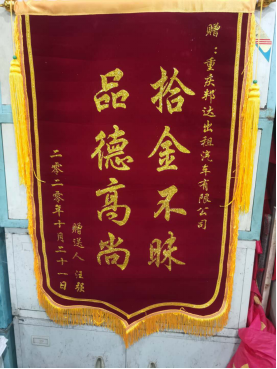 赠：重庆邦达出租汽车有限公司
拾金不昧
品德高尚
赠送人 任强
二零二零年十月二十一日